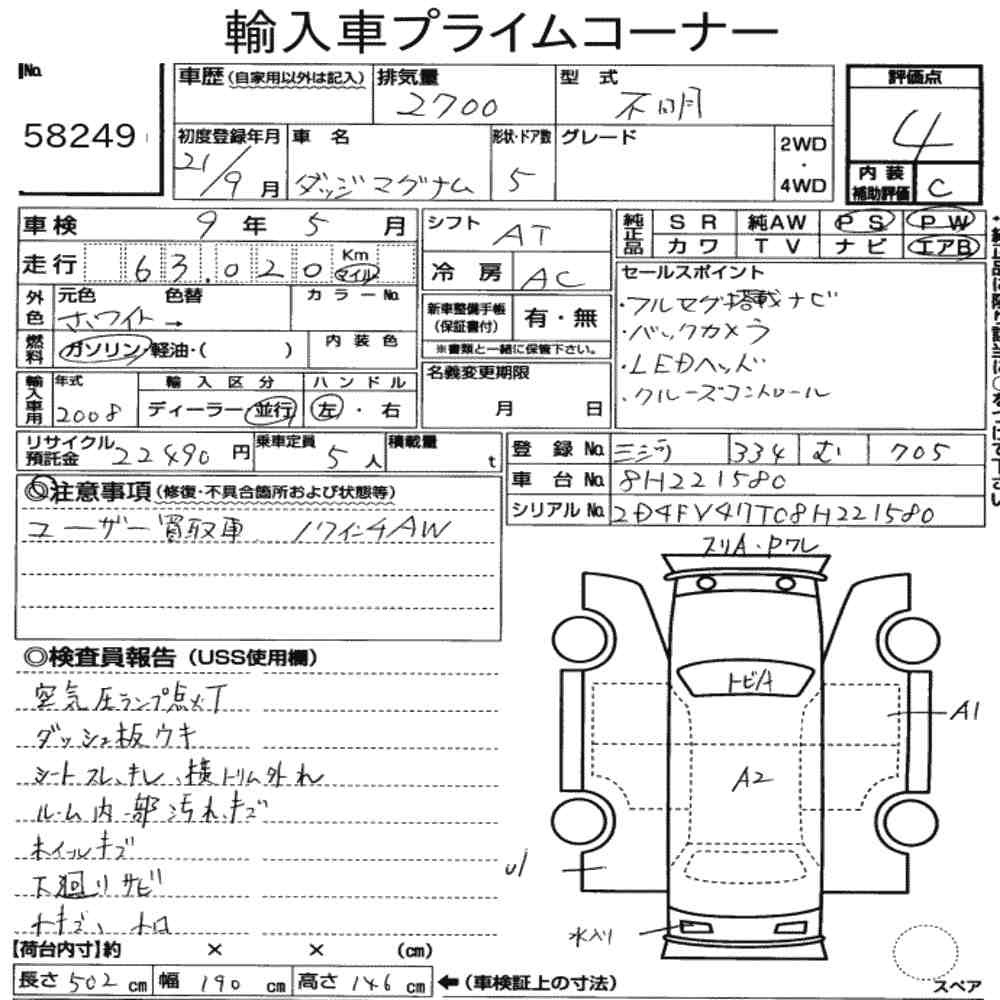 輸入車プライムコーナー
No. 58249
車歴(自家用以外は記入) 排気量 2700 型式 不明
初度登録年月 21/9月 車名 ダッジマグナム 形状・ドア数 5 グレード 2WD・4WD
評価点 4
内装補助評価 C
車検 9年5月 シフト AT
走行 63.020 Km マイル 冷房 AC
純正品 SR 純AW PS PW
カワ TV ナビ エアB
外色 元色 ホワイト→ 色替 カラーNo.
燃料 ガソリン・軽油・( ) 内装色
新車整備手帳(保証書付) 有・無
※書類と一緒に保管下さい。
セールスポイント
・フルセグ搭載ナビ
・バックカメラ
・LEDヘッド
・クルーズコントロール
輸入車用 年式 2008 輸入区分 ディーラー・並行 ハンドル 左・右
名義変更期限 月 日
リサイクル預託金 22490円 乗車定員 5人 積載量 t
登録No. 334 む 705
車台No. 8H221580
シリアルNo. 2D4FV47TC8H221580
◎注意事項(修復・不具合箇所および状態等)
ユーザー買取車 17インチAW
◎検査員報告(USS使用欄)
空気圧ランプ点灯
ダッシュ板ウキ
シートスレ、キレ、横トリム外れ
ルーム内一部汚れ、キズ
ホイールキズ
下廻りサビ
スリA・Pワレ
トビA
A1
A2
U1
水入り
スペア
【荷台内寸】約 × × (cm)
長さ 502cm 幅 190cm 高さ 146cm ←(車検証上の寸法)